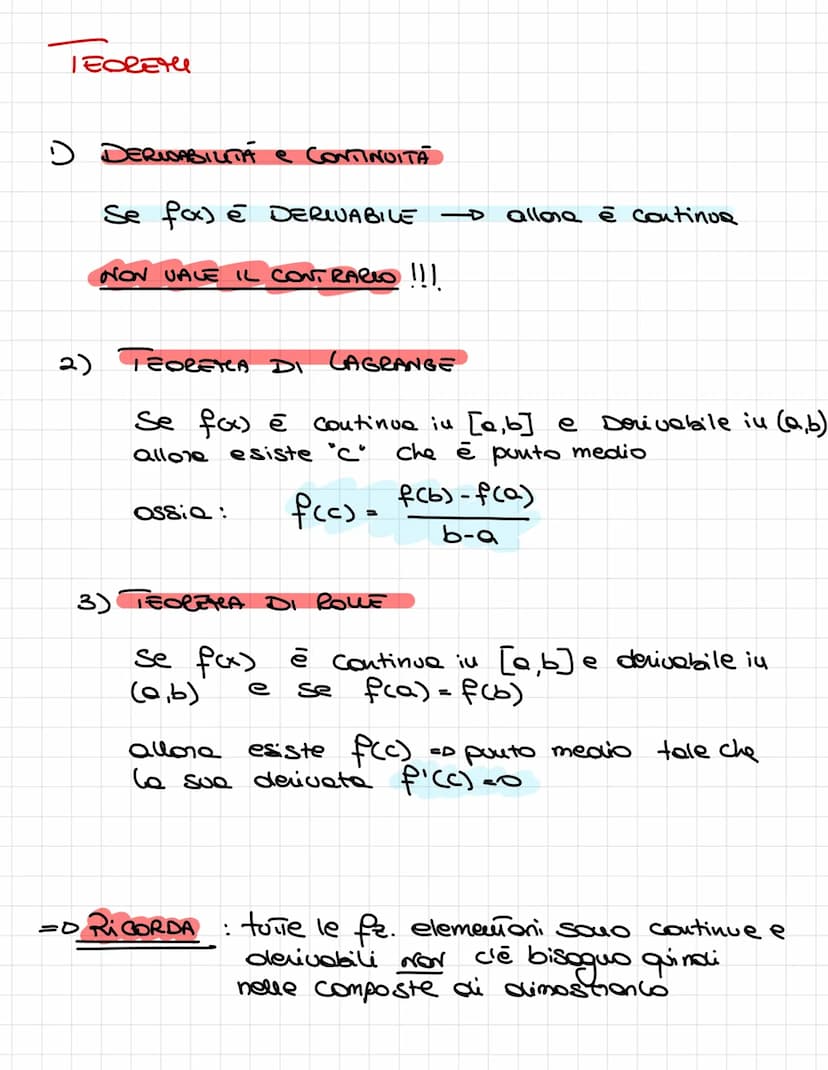 TEOREMI
1) DERIVABILITÁ e CONTINUITÁ
Se f(x) é DERIVABILE → allora é continua
NON VALE IL CONTRARIO !!!
2) TEOREMA DI LAGRANGE
Se f(x) é continua in [a,b] e Derivabile in (a,b)
allora esiste "c" che é punto medio
ossia: f(c) = f(b)-f(a) / b-a
3) TEOREMA DI ROLLE
Se f(x) é continua in [a,b] e derivabile in
(a,b) e se f(a) = f(b)
allora esiste f(c) => punto medio tale che
la sua derivata f'(c) = 0
=> RICORDA : tutte le fz. elementari sono continue e
derivabili NON c'é bisogno quindi
nelle composte di dimostrarlo